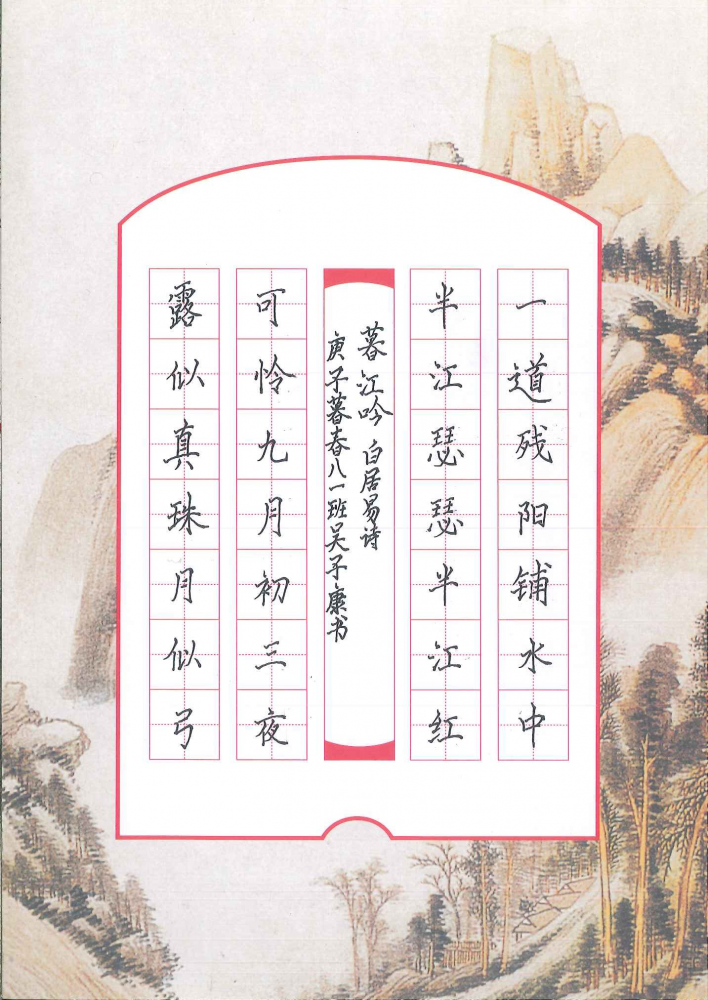 一道残阳铺水中
半江瑟瑟半江红
暮江吟 白居易诗
庚子暮春八一班吴子康书
可怜九月初三夜
露似真珠月似弓